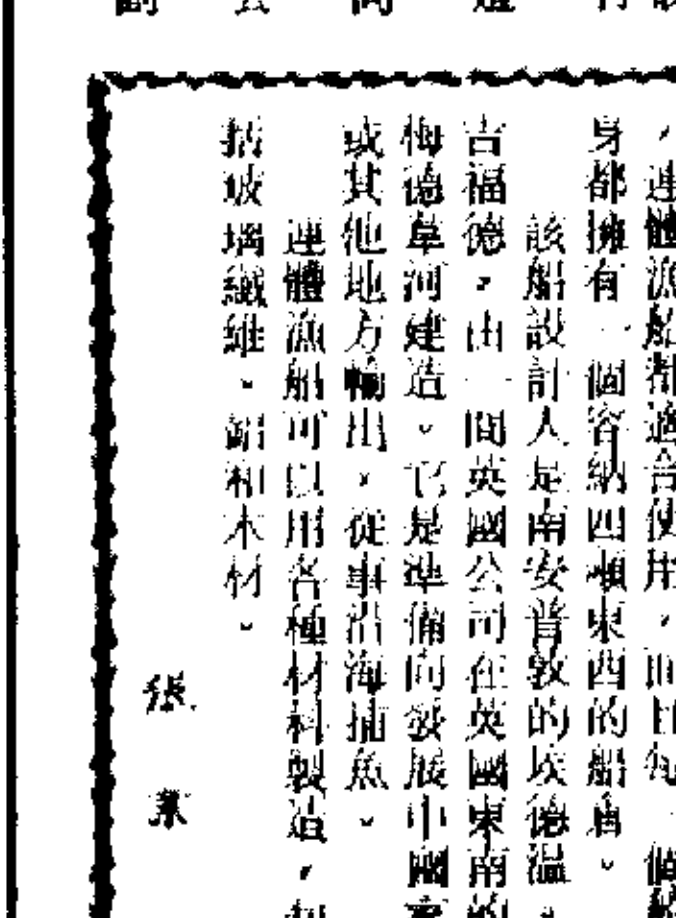 ，連體漁船都適合使用，而且每一個
身都擁有一個容納四噸東西的船艙。
該船設計人是南安普敦的坎德溫．
吉福德，由一間英國公司在英國東南的
梅德韋河建造。它是準備向發展中國家
或其他地方輸出，從事沿海捕魚。
連體漁船可以用各種材料製造，包
括玻璃纖維、鋁和木材。
張